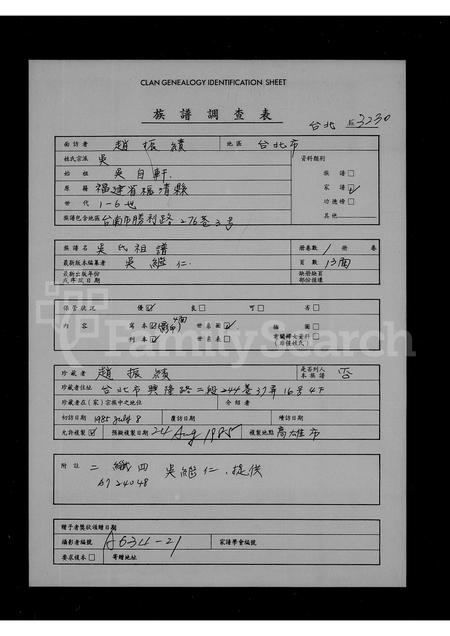 CLAN GENEALOGY IDENTIFICATION SHEET
族譜調查表
台北 3230
面訪者 趙振績 地區 台北市
姓氏宗派 吳 資料類別
始祖 吳自軒. 族譜□
原籍 福建省福清縣 家譜☑
世代 1-6世 功德榜□
族譜包含地區 台南市勝利路276巷3号 其他
族譜名 吳氏祖譜 冊卷數 1 冊 卷
最新版本編纂者 吳繼仁. 頁數 13面
最新出版年份 缺冊缺頁
或序跋日期 部份損壞
保管狀況 優☑ 良□ 可□ 否□
內容 寫本☑ 世系圖☑ 插圖□
刊本☑ 世系表□
珍藏者 趙振績 是否列入本族譜 否
珍藏者住址 台北市興隆路二段244巷37弄16号4下
珍藏者在(家)宗族中之地位 介紹者
初訪日期 1985 July 8 覆訪日期 續訪日期
允許複製☑ 預擬複製日期 24 Aug 1985 複製地點 高雄市
附註 二 四 吳繼仁.提供
6724048
贈予者獎狀頒贈日期
攝影者編號 A634-21 家譜學會編號
要求複本□ 寄贈地址
FamilySearch